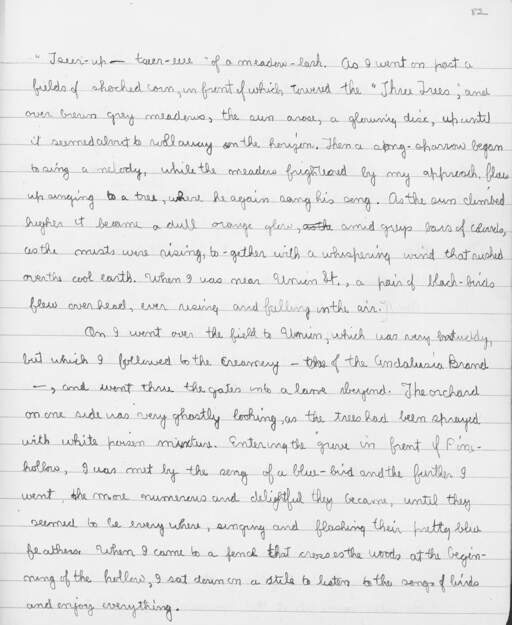 82
" Tseer-up — tseer-eee" of a meadow-lark. As I went on past a
fields of shocked corn, in front of which towered the "Three Trees", and
over brown grey meadows, the sun arose, a glowing disc, up until
it seemed about to roll away on the horizon. Then a song-sparrow began
to sing a melody, while the meadow frightened by my approach, flew
up singing to a tree, where he again sang his song. As the sun climbed
higher it became a dull orange glow, amid greys bars of clouds,
as the mists were rising, to-gether with a whispering wind that rushed
over the cool earth. When I was near Union St., a pair of black-birds
flew overhead, ever rising and falling in the air.
On I went over the field to Union, which was very muddy,
but which I followed to the Creamery — of the Andalusia Brand
—, and went thru the gates into a lane beyond. The orchard
on one side was very ghostly looking, as the trees had been sprayed
with white poison mixture. Entering the grove in front of Pine-
hollow, I was met by the song of a blue-bird and the further I
went, the more numerous and delightful they became, until they
seemed to be every where, singing and flashing their pretty blue
feathers. When I came to a fence that crosses the woods at the begin-
ning of the hollow, I sat down on a stile to listen to the songs of birds
and enjoy everything.